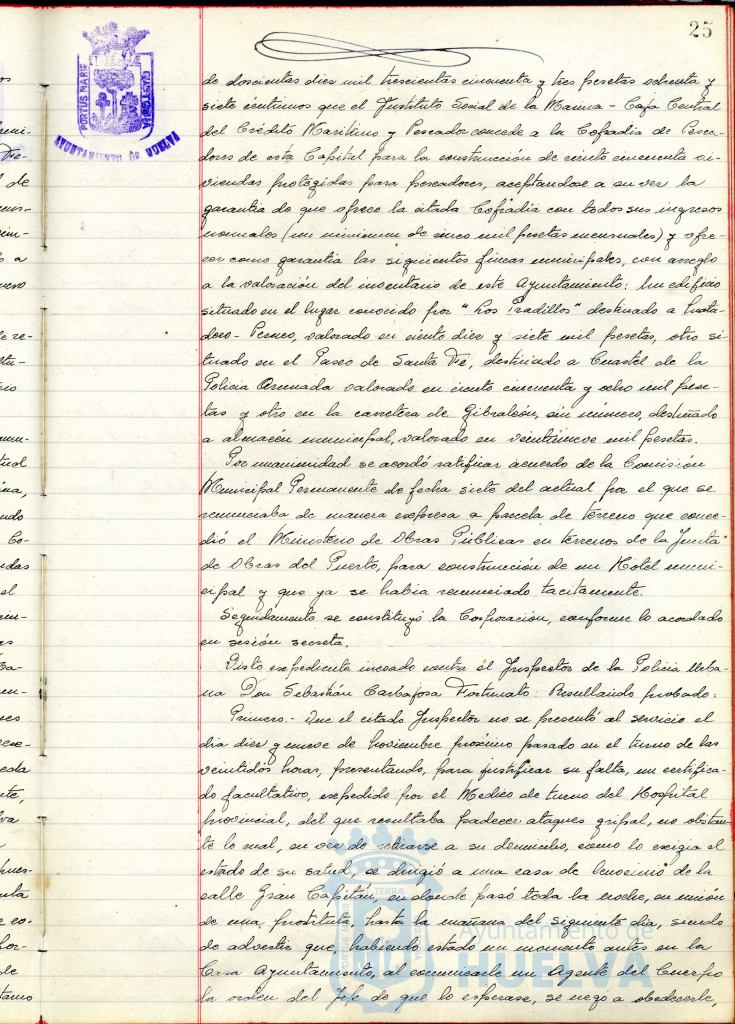 25
PORTUS MARIS ET TERRAE CUSTODIA
AYUNTAMIENTO DE HUELVA
de doscientas diez mil trescientas cincuenta y tres pesetas ochenta y
siete centimos que el Instituto Social de la Marina - Caja Central
del Crédito Maritimo y Pescador concede a la Cofradia de Pesca-
dores de esta Capital para la construcción de ciento cincuenta vi-
viendas protegidas para pescadores, aceptandose a su vez la
garantia de que ofrece la citada Cofradia con todos sus ingresos
normales (un minimum de cinco mil pesetas mensuales) y ofre-
cer como garantia las siguientes fincas municipales, con arreglo
a la valoración del inventario de este Ayuntamiento: Un edificio
situado en el lugar conocido por "Los Pradillos" destinado a Mata-
dero - Perneo, valorado en ciento diez y siete mil pesetas, otro si-
tuado en el Paseo de Santa Fe, destinado a Cuartel de la
Policia Armada valorado en ciento cincuenta y ocho mil pese-
tas y otro en la carretera de Gibraleón, sin número, destinado
a almacén municipal, valorado en veintinueve mil pesetas.
Por unanimidad se acordó ratificar acuerdo de la Comisión
Municipal Permanente de fecha siete del actual por el que se
renunciaba de manera expresa a parcela de terreno que conce-
dió el Ministerio de Obras Públicas en terrenos de la Junta
de Obras del Puerto, para construcción de un Hotel muni-
cipal y que ya se habia renunciado tacitamente.
Seguidamente se constituyó la Corporación, conforme lo acordado
en sesión secreta.
Visto expediente incoado contra el Inspector de la Policia Urba-
na Don Sebastián Carbajosa Fortunato: Resultando probado:
Primero.- Que el citado Inspector no se presentó al servicio el
dia diez y nueve de Noviembre proximo pasado en el turno de las
veintidos horas, presentando, para justificar su falta, un certifica-
do facultativo, expedido por el Medico de turno del Hospital
Provincial, del que resultaba padecer ataques gripal, no obstan-
te lo cual, en vez de retirarse a su domicilio, como lo exigia el
estado de su salud, se dirigió a una casa de lenocinio de la
calle Gran Capitán, en donde pasó toda la noche, en unión
de una prostituta, hasta la mañana del siguiente dia, siendo
de advertir que, habiendo estado un momento antes en la
Casa Ayuntamiento, al comunicarle un Agente del Cuerpo
la orden del Jefe de que lo esperase, se negó a obedecerle,
Ayuntamiento de
HUELVA